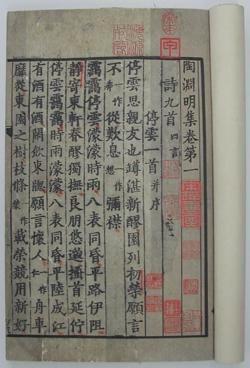 陶淵明集卷第一
詩九首 四言
停雲一首 并序
停雲思親友也罇湛新醪園列初榮願言
不 一作 從歎息 一作想 彌襟
靄靄停雲濛濛時雨八表同昏平路伊阻
靜寄東軒春醪獨撫良朋悠邈搔首延佇
停雲靄靄時雨濛濛八表同昏平陸成江
有酒有酒閒飲東牕願言懷人 一作仁 舟車
靡從東園之樹枝條 作 載榮競用新好